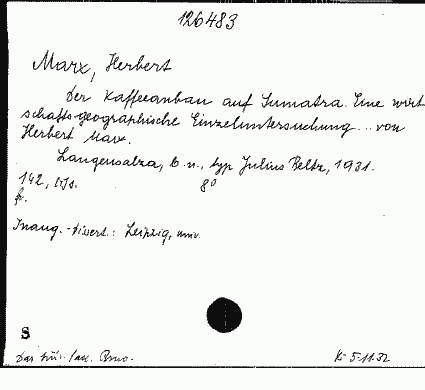 126483
Marx, Herbert
Der Kaffeeanbau auf Sumatra. Eine wirt
schafts-geographische Einzeluntersuchung... von
Herbert Marx.
Langensalza, b. n., typ Julius Beltz, 1931.
142, 8°
fr.
Inaug.-Dissert.: Leipzig, univ.
S
Dar fac. Brno. K 5.11.32